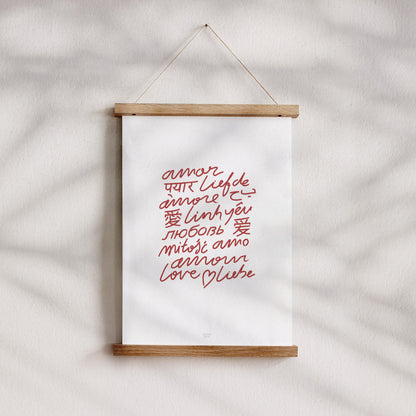 amor
पयार liefde
amore حب
愛 linh yêu
любовь 爱
miłość amo
amour
love liebe